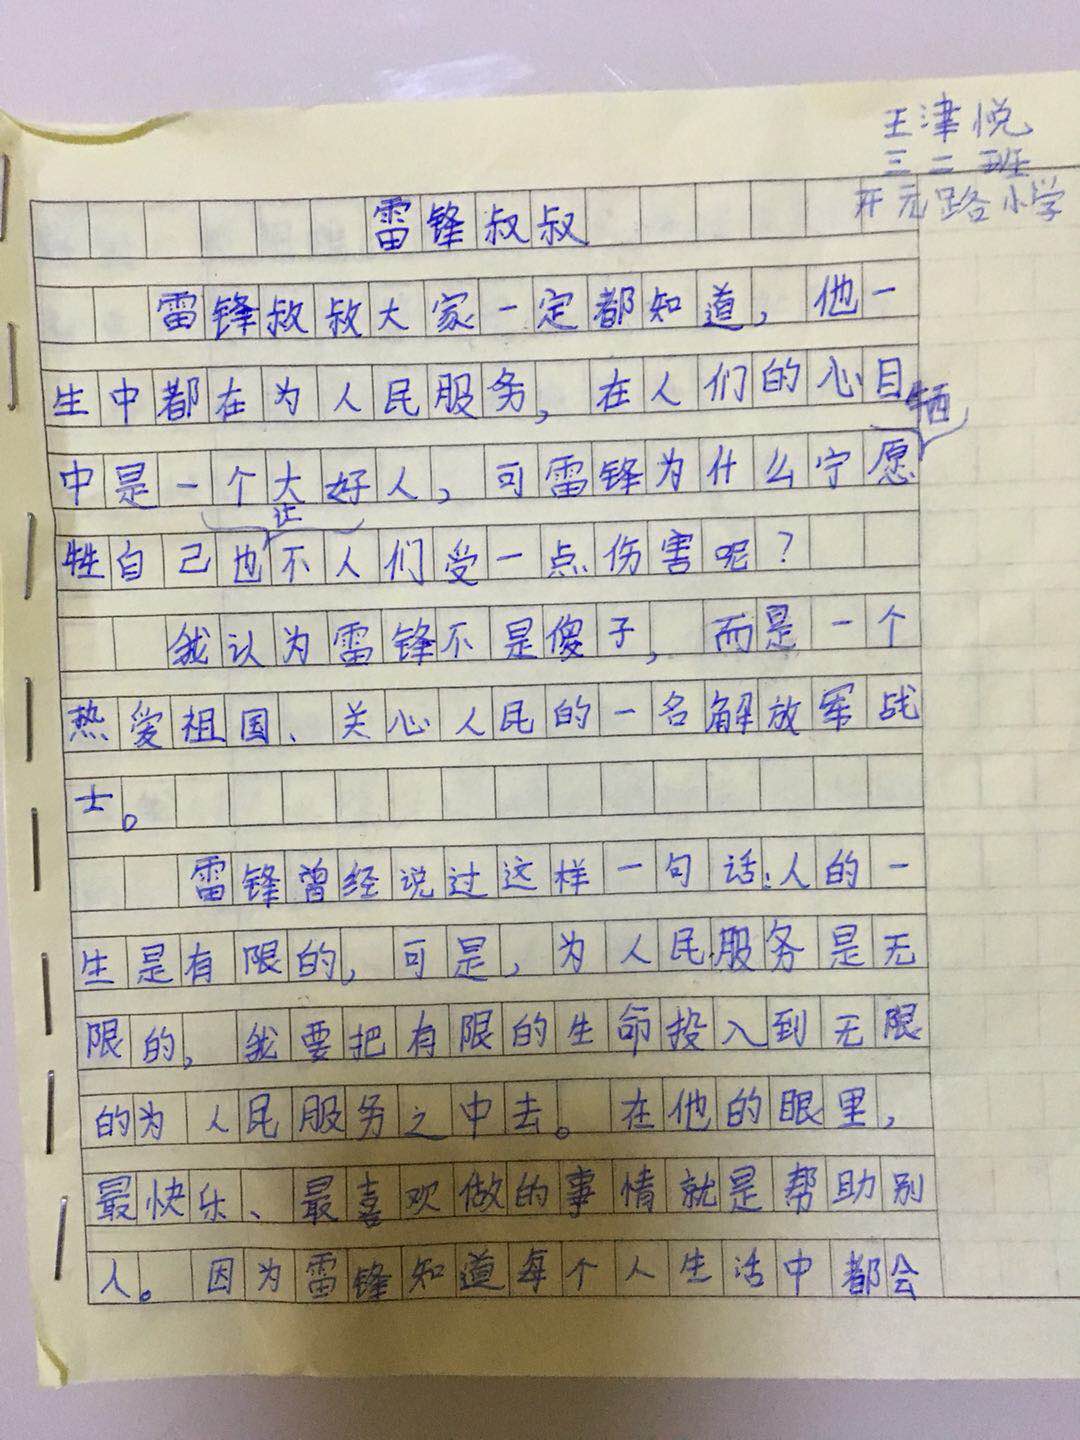 王津悦
三二班
开元路小学
雷锋叔叔
雷锋叔叔大家一定都知道，他一
生中都在为人民服务，在人们的心目
中是一个大好人，可雷锋为什么宁愿牺
牲自己也不让人们受一点伤害呢？
我认为雷锋不是傻子，而是一个
热爱祖国、关心人民的一名解放军战
士。
雷锋曾经说过这样一句话：人的一
生是有限的，可是，为人民服务是无
限的，我要把有限的生命投入到无限
的为人民服务之中去。在他的眼里，
最快乐、最喜欢做的事情就是帮助别
人。因为雷锋知道每个人生活中都会